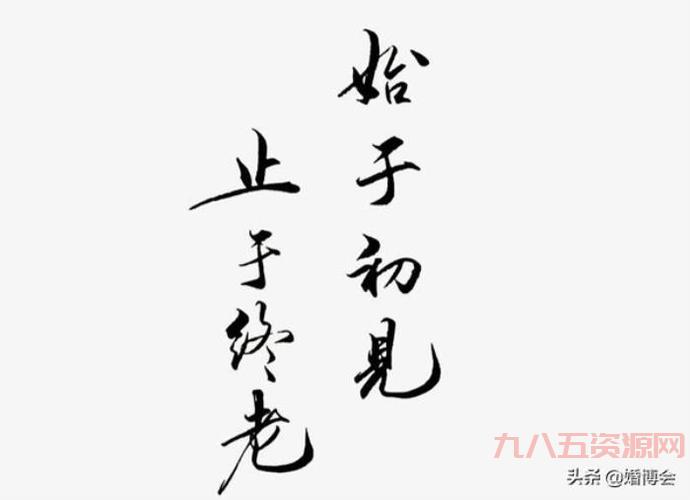 始于初見
止于终老
九八五资源网
头条 @婚博会